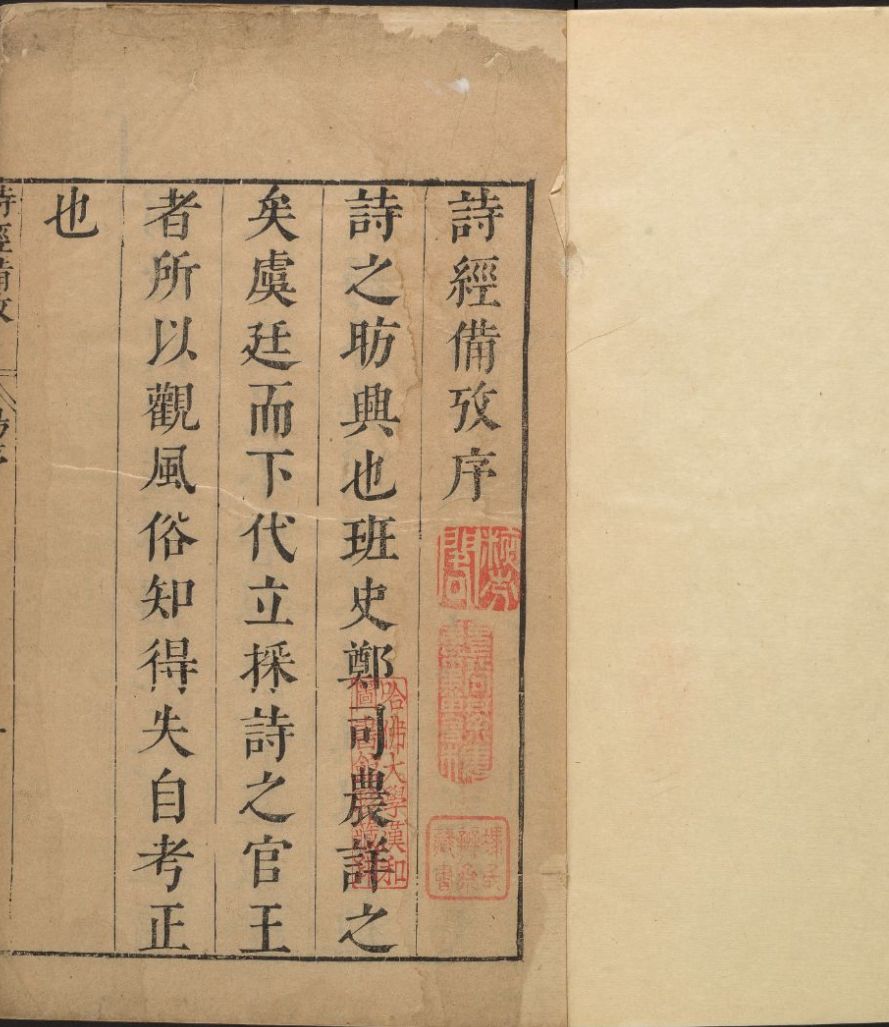 詩經備攷序
詩之昉興也班史鄭司農詳之
矣虞廷而下代立採詩之官王
者所以觀風俗知得失自考正
也
詩經備攷
哈佛大學漢和
圖書館珍藏